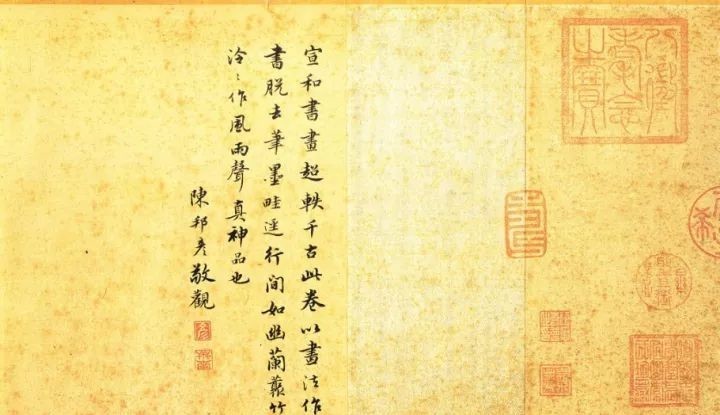 八徵耄念之寶
宣和書畫超軼千古此卷以畫法作
書脫去筆墨畦逕行間如幽蘭叢竹
泠〻作風雨聲真神品也
陳邦彥敬觀